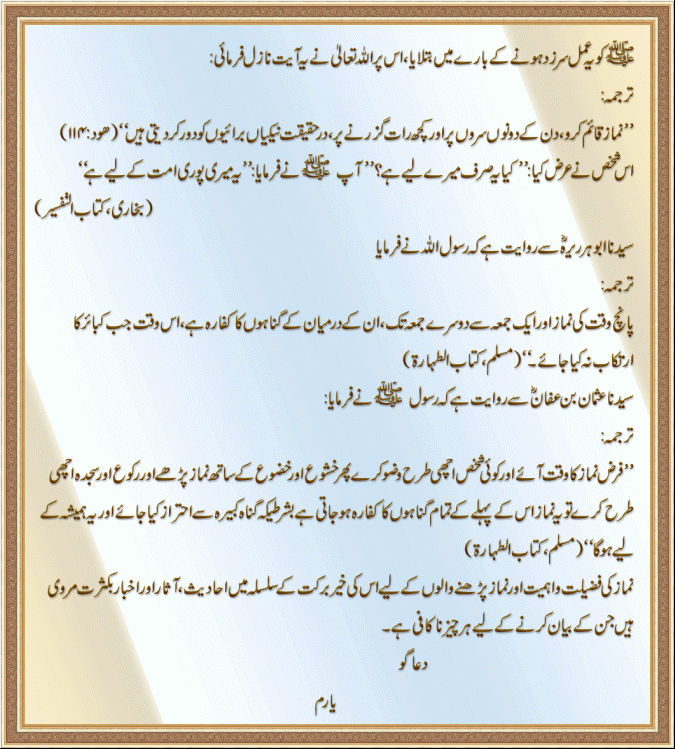 ﷺ کو یہ عمل سرزد ہونے کے بارے میں بتلایا، اس پر اللہ تعالیٰ نے یہ آیت نازل فرمائی:
ترجمہ:
’’نماز قائم کرو، دن کے دونوں سروں پر اور کچھ رات گزرنے پر، درحقیقت نیکیاں برائیوں کو دور کردیتی ہیں‘‘ (ھود: ۱۱۴)
اس شخص نے عرض کیا: ’’کیا یہ صرف میرے لیے ہے؟‘‘ آپ ﷺ نے فرمایا: ’’یہ میری پوری امت کے لیے ہے‘‘
(بخاری، کتاب التفسیر)
سیدنا ابو ہریرہؓ سے روایت ہے کہ رسول اللہ نے فرمایا
ترجمہ:
پانچ وقت کی نماز اور ایک جمعہ سے دوسرے جمعہ تک، ان کے درمیان کے گناہوں کا کفارہ ہے، اس وقت جب کبائر کا
ارتکاب نہ کیا جائے۔‘‘ (مسلم، کتاب الطہارۃ)
سیدنا عثمان بن عفانؓ سے روایت ہے کہ رسول ﷺ نے فرمایا:
ترجمہ:
’’فرض نماز کا وقت آئے اور کوئی شخص اچھی طرح وضو کرے پھر خشوع اور خضوع کے ساتھ نماز پڑھے اور رکوع اور سجدہ اچھی
طرح کرے تو یہ نماز اس کے پہلے کے تمام گناہوں کا کفارہ ہوجاتی ہے بشرطیکہ گناہ کبیرہ سے احتراز کیا جائے اور یہ ہمیشہ کے
لیے ہوگا‘‘ (مسلم، کتاب الطہارۃ)
نماز کی فضیلت و اہمیت اور نماز پڑھنے والوں کے لیے اس کی خیر برکت کے سلسلہ میں احادیث، آثار اور اخبار بکثرت مروی
ہیں جن کے بیان کرنے کے لیے ہر چیز ناکافی ہے۔
دعا گو
یارم